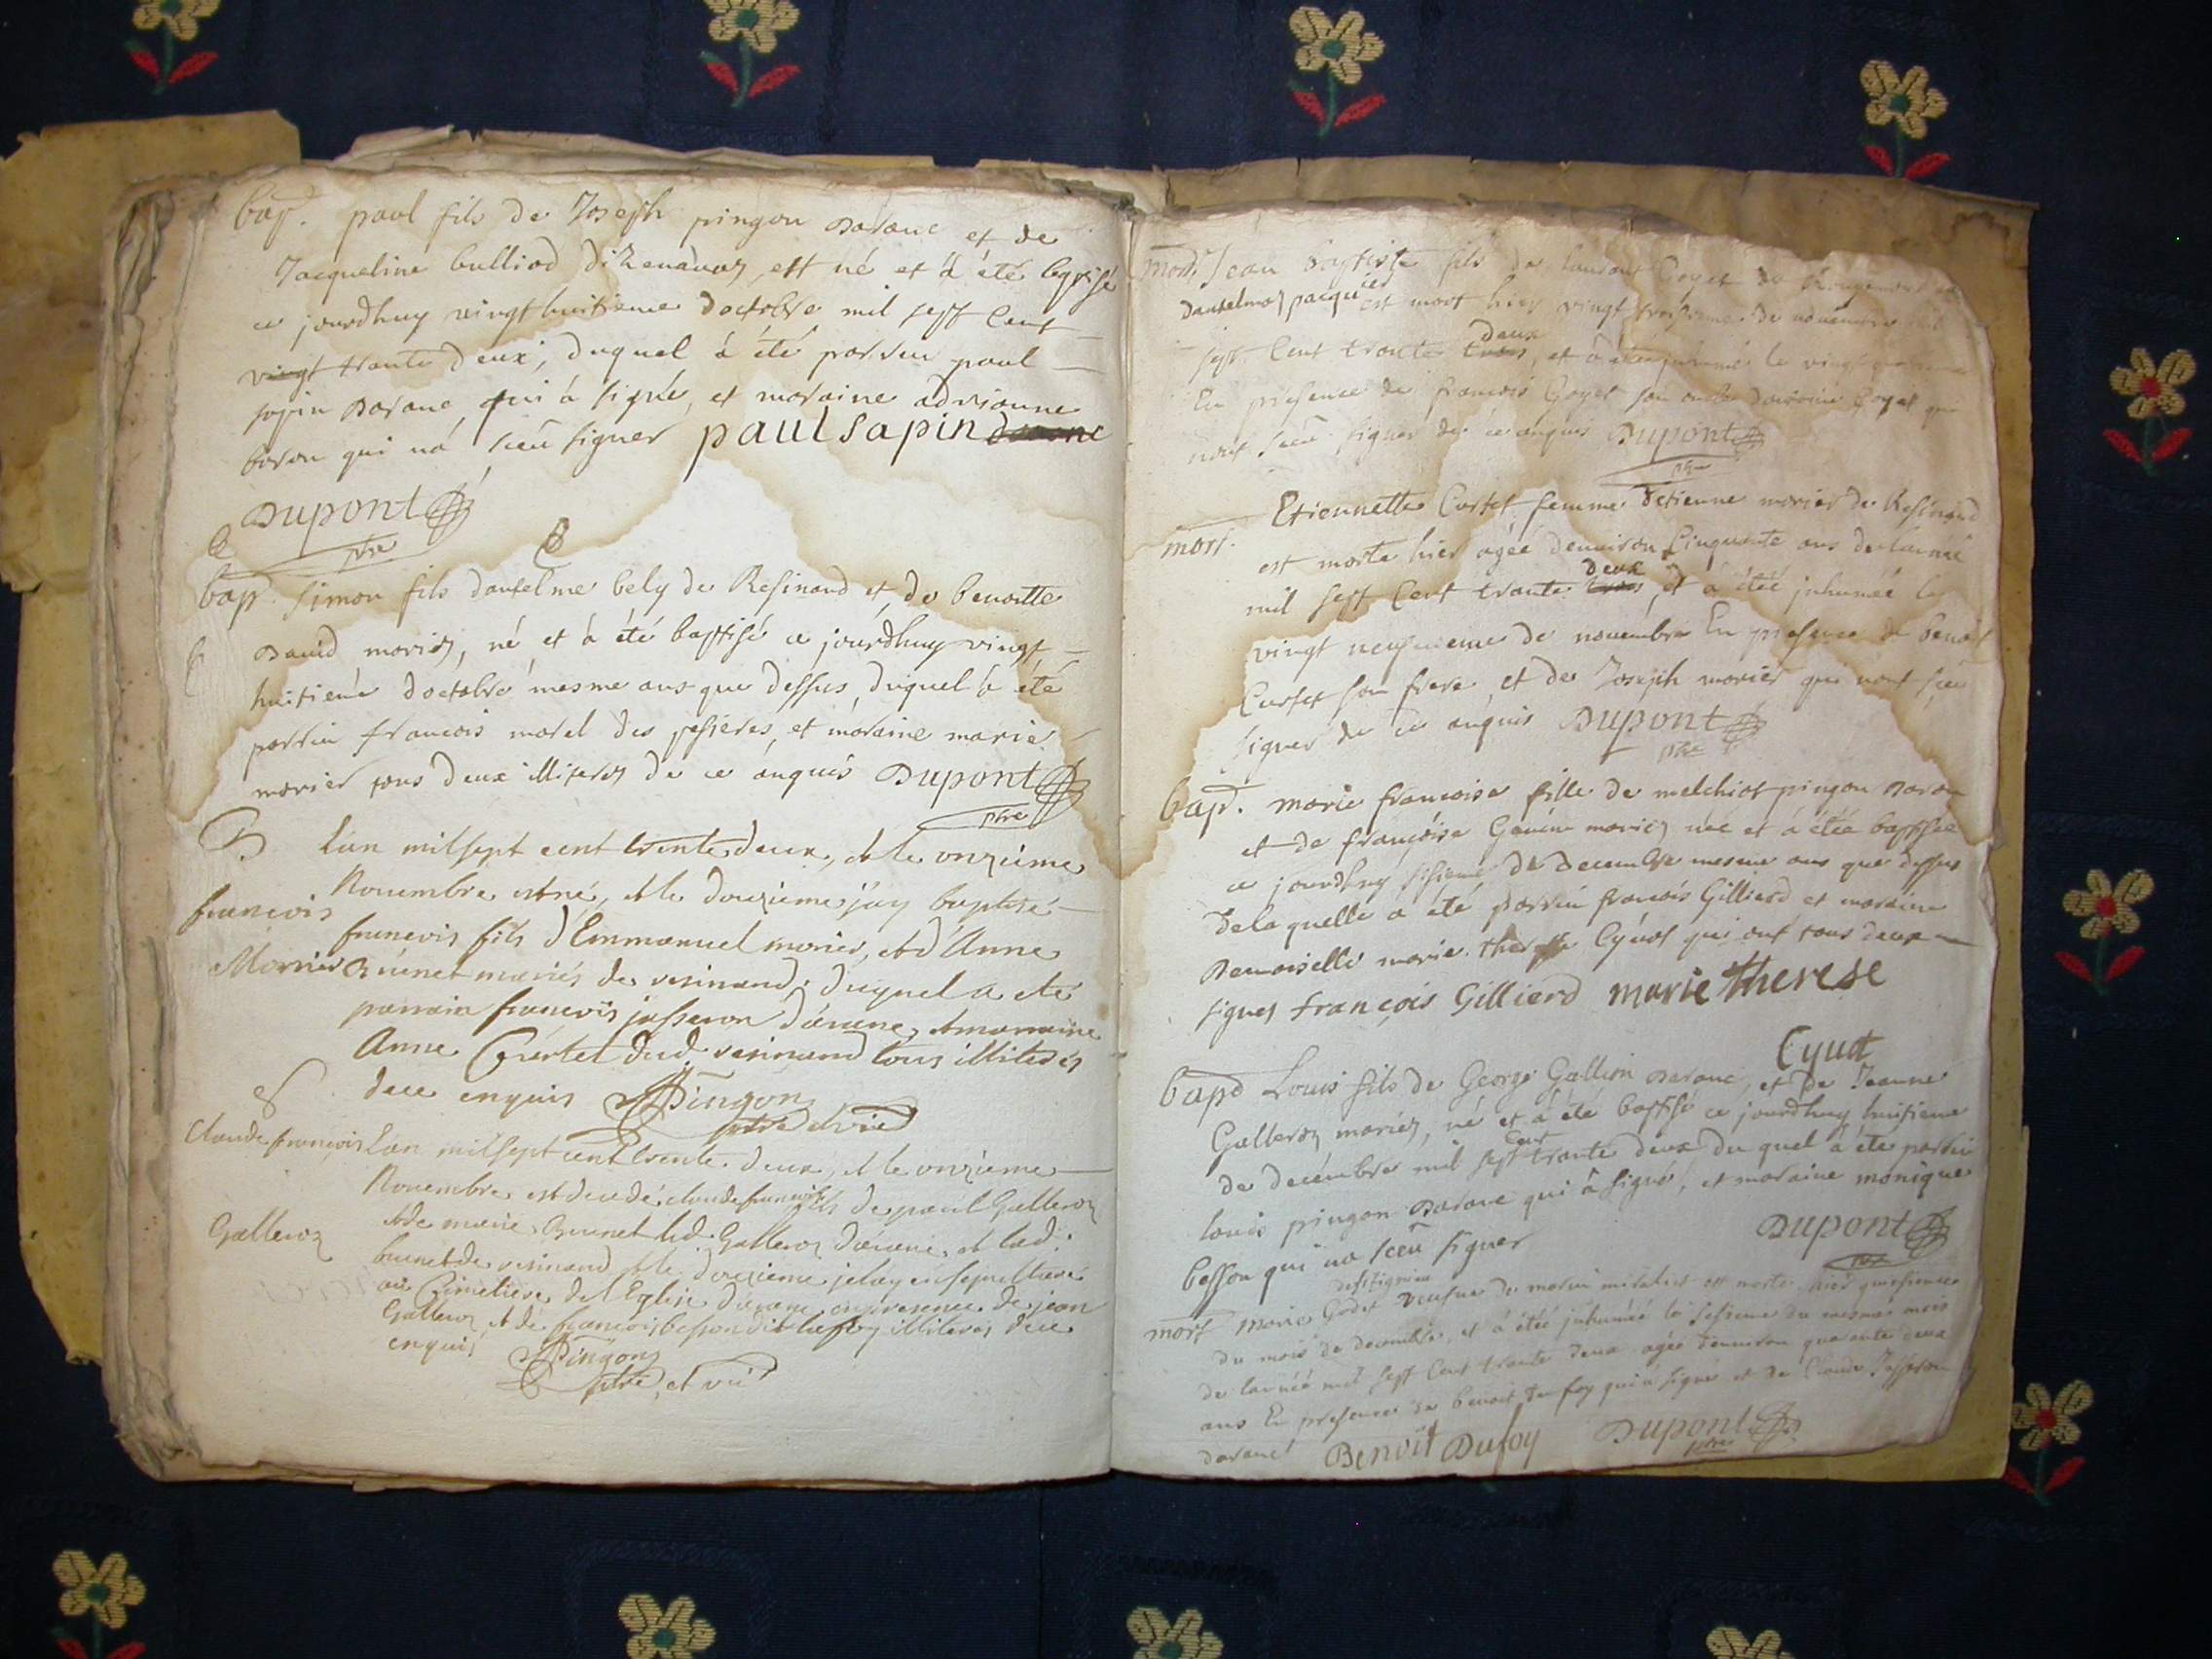 bap. paul fils de Joseph pingon Darane et de
Jacqueline bulliod est né et à été baptisé
ce jourdhuy vingt huitieme doctobre mil sept cent
vingt trante deux, duquel à été parrin paul
sapin Darane qui à signé, et maraine
baron qui na sceu signer paul sapin
Dupont
ptre
bap. Simon fils dantelme bely de Resinand et de benoitte
David mariez, né et à été baptisé ce jourdhuy vingt
huitieme doctobre mesme ans que dessus, duquel à été
parrin francois morel des, et maraine marie
morier tous deux illiterez de ce enquis Dupont
ptre
Lan milsept cent trente deux, et le onzieme
Novembre est né, et le douzieme jay baptisé
francois
francois fils d'Emmanuel morier, et d'Anne
Morier
mariés de resinand, duquel a eté
parrain francois josseron d'arane, et marraine
Anne Curtet dud. resinand tous illiterés
dece enquis Pingon
ptre et vic
Claude francois Lan milsept cent trente deux, et le onzieme
Novembre est decedé claude francois fils de paul Galleron
et de marie Brunet led. Galleron d'arane, et lad.
Galleron
brunet de resinand et le douzieme je lay ensepulturé
au Cimetiere de l'Eglise d'arane en presence de jean
Galleron et de francois besson dit illiterés dece
enquis Pingon
ptre et vic
mort. Jean Baptiste fils de Goyet de
est mort hier vingt troisieme de novembre mil
deux
sept cent trante trois, et à été inhumé le vingt
En presence de francois Goyet son oncle Goyet qui
nont sceu signer de ce enquis Dupont
ptre
mort. Etiennette Curtet femme detienne morier de Resinand
est morte hier agée denviron Cinquante ans de lannée
deux
mil sept Cent trante trois, et à été inhumée le
vingt neufvieme de novembre En presence de benoit
Curtet son frere, et de Joseph morier qui nont sceu
signer de ce enquis Dupont
ptre
bap. marie francoise fille de melchior pingon Darane
et de françoise mariez née et à été baptisée
ce jourdhuy sisieme de decembre mesme ans que dessus
de laquelle à été parrin francois Gilliard et maraine
Demoiselle marie therese Cyvot qui ont tous deux
signés françois Gilliard marie therese
Cyvot
bap Louis fils de George Gallion Darane, et de Jeanne
Galleron mariez, né et à été baptisé ce jourdhuy huitieme
cent
de decembre mil sept trante deux du quel à été parrin
louis pingon Darane qui à signé, et maraine monique
besson qui na sceu signer Dupont
ptre
mort marie Godet veufve de est morte hier quinsieme
du mois de decembre, et à été inhumée le sesieme du mesme mois
de lannée mil sept Cent trante deux agée denviron quarante deux
ans En presence de benoit dufoy qui à signé et de Claude Josseron
darane Benoit Dufoy Dupont
ptre